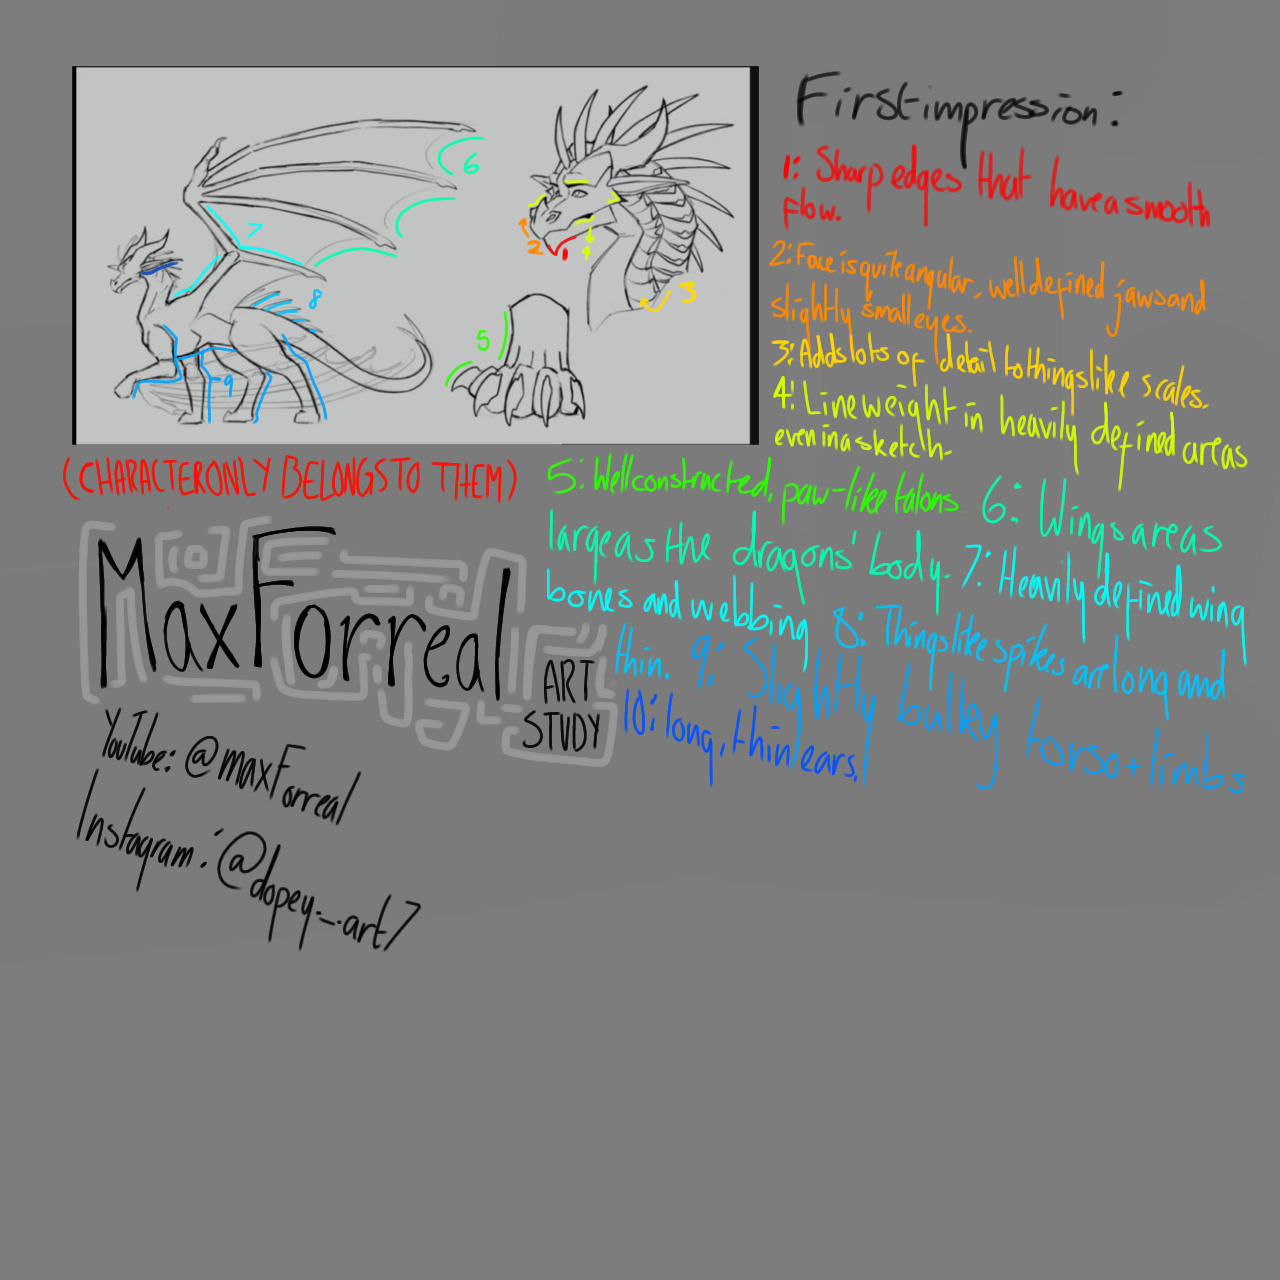 First impression:
1: Sharp edges that have a smooth
flow.
2: Face is quite angular, well defined jaws and
slightly small eyes.
3: Adds lots of detail to things like scales.
4: Line weight in heavily defined areas
even in a sketch.
5: Well constructed, paw-like talons. 6: Wings are as
large as the dragons' body. 7: Heavily defined wing
bones and webbing 8: Things like spikes are long and
thin. 9: Slightly bulky torso + limbs
10: long, thin ears.
6
7
8
9
5
2
1
4
3
(CHARACTER ONLY BELONGS TO THEM)
MaxForreal
ART
STUDY
YouTube: @maxForreal
Instagram: @dopey._.art7